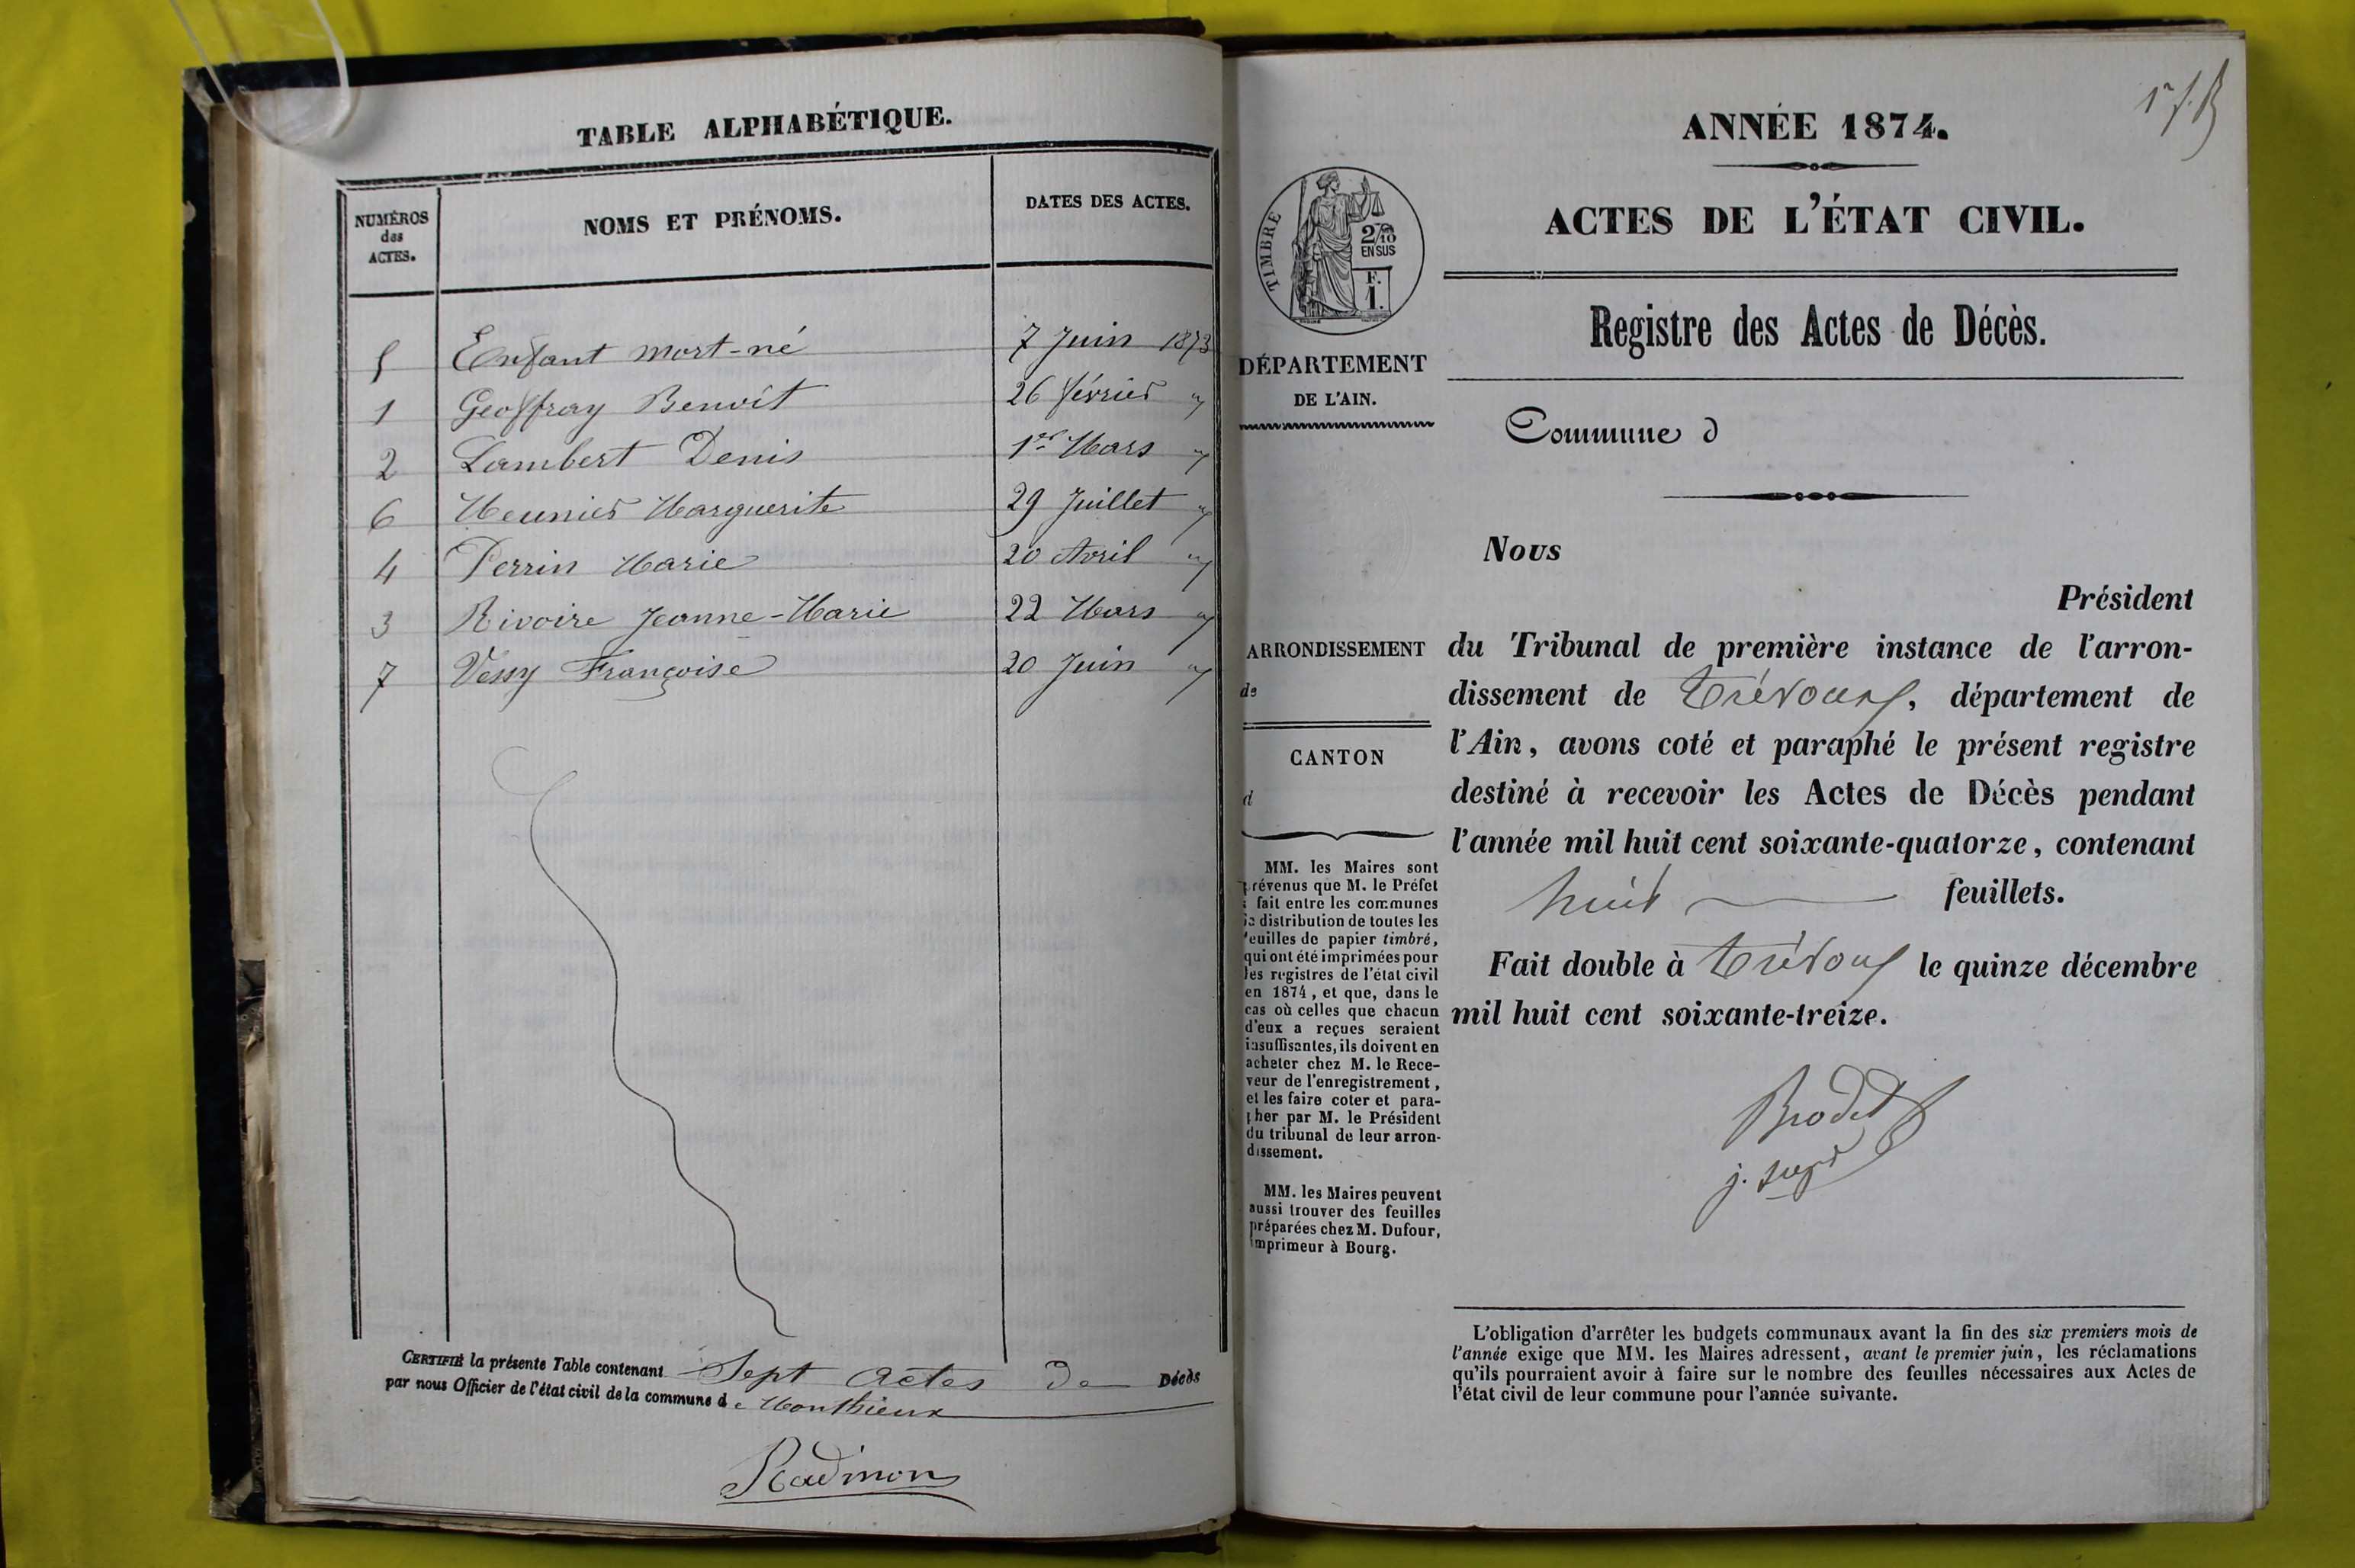 TABLE ALPHABÉTIQUE.
NUMÉROS
des
ACTES.
NOMS ET PRÉNOMS.
DATES DES ACTES.
5 Enfant mort-né 7 Juin 1873
1 Geoffray Benoît 26 février "
2 Lambert Denis 1er Mars "
6 Meunier Marguerite 29 Juillet "
4 Perrin Marie 20 Avril "
3 Rivoire Jeanne-Marie 22 Mars "
7 Vessy Françoise 20 Juin "
CERTIFIÉ la présente Table contenant Sept actes de Décès
par nous Officier de l'état civil de la commune de Monthieux
Radinon
ANNÉE 1874.
ACTES DE L'ÉTAT CIVIL.
TIMBRE
2/10
EN SUS
F.
1.
Registre des Actes de Décès.
DÉPARTEMENT
DE L'AIN.
Commune d
Nous
Président
ARRONDISSEMENT
de
CANTON
d
du Tribunal de première instance de l'arron-
dissement de Trévoux, département de
l'Ain, avons coté et paraphé le présent registre
destiné à recevoir les Actes de Décès pendant
l'année mil huit cent soixante-quatorze, contenant
huit feuillets.
Fait double à Trévoux le quinze décembre
mil huit cent soixante-treize.
Brodet
MM. les Maires sont
prévenus que M. le Préfet
a fait entre les communes
la distribution de toutes les
feuilles de papier timbré,
qui ont été imprimées pour
les registres de l'état civil
en 1874, et que, dans le
cas où celles que chacun
d'eux a reçues seraient
insuffisantes, ils doivent en
acheter chez M. le Rece-
veur de l'enregistrement,
et les faire coter et para-
pher par M. le Président
du tribunal de leur arron-
dissement.
MM. les Maires peuvent
aussi trouver des feuilles
préparées chez M. Dufour,
imprimeur à Bourg.
L'obligation d'arrêter les budgets communaux avant la fin des six premiers mois de
l'année exige que MM. les Maires adressent, avant le premier juin, les réclamations
qu'ils pourraient avoir à faire sur le nombre des feuilles nécessaires aux Actes de
l'état civil de leur commune pour l'année suivante.